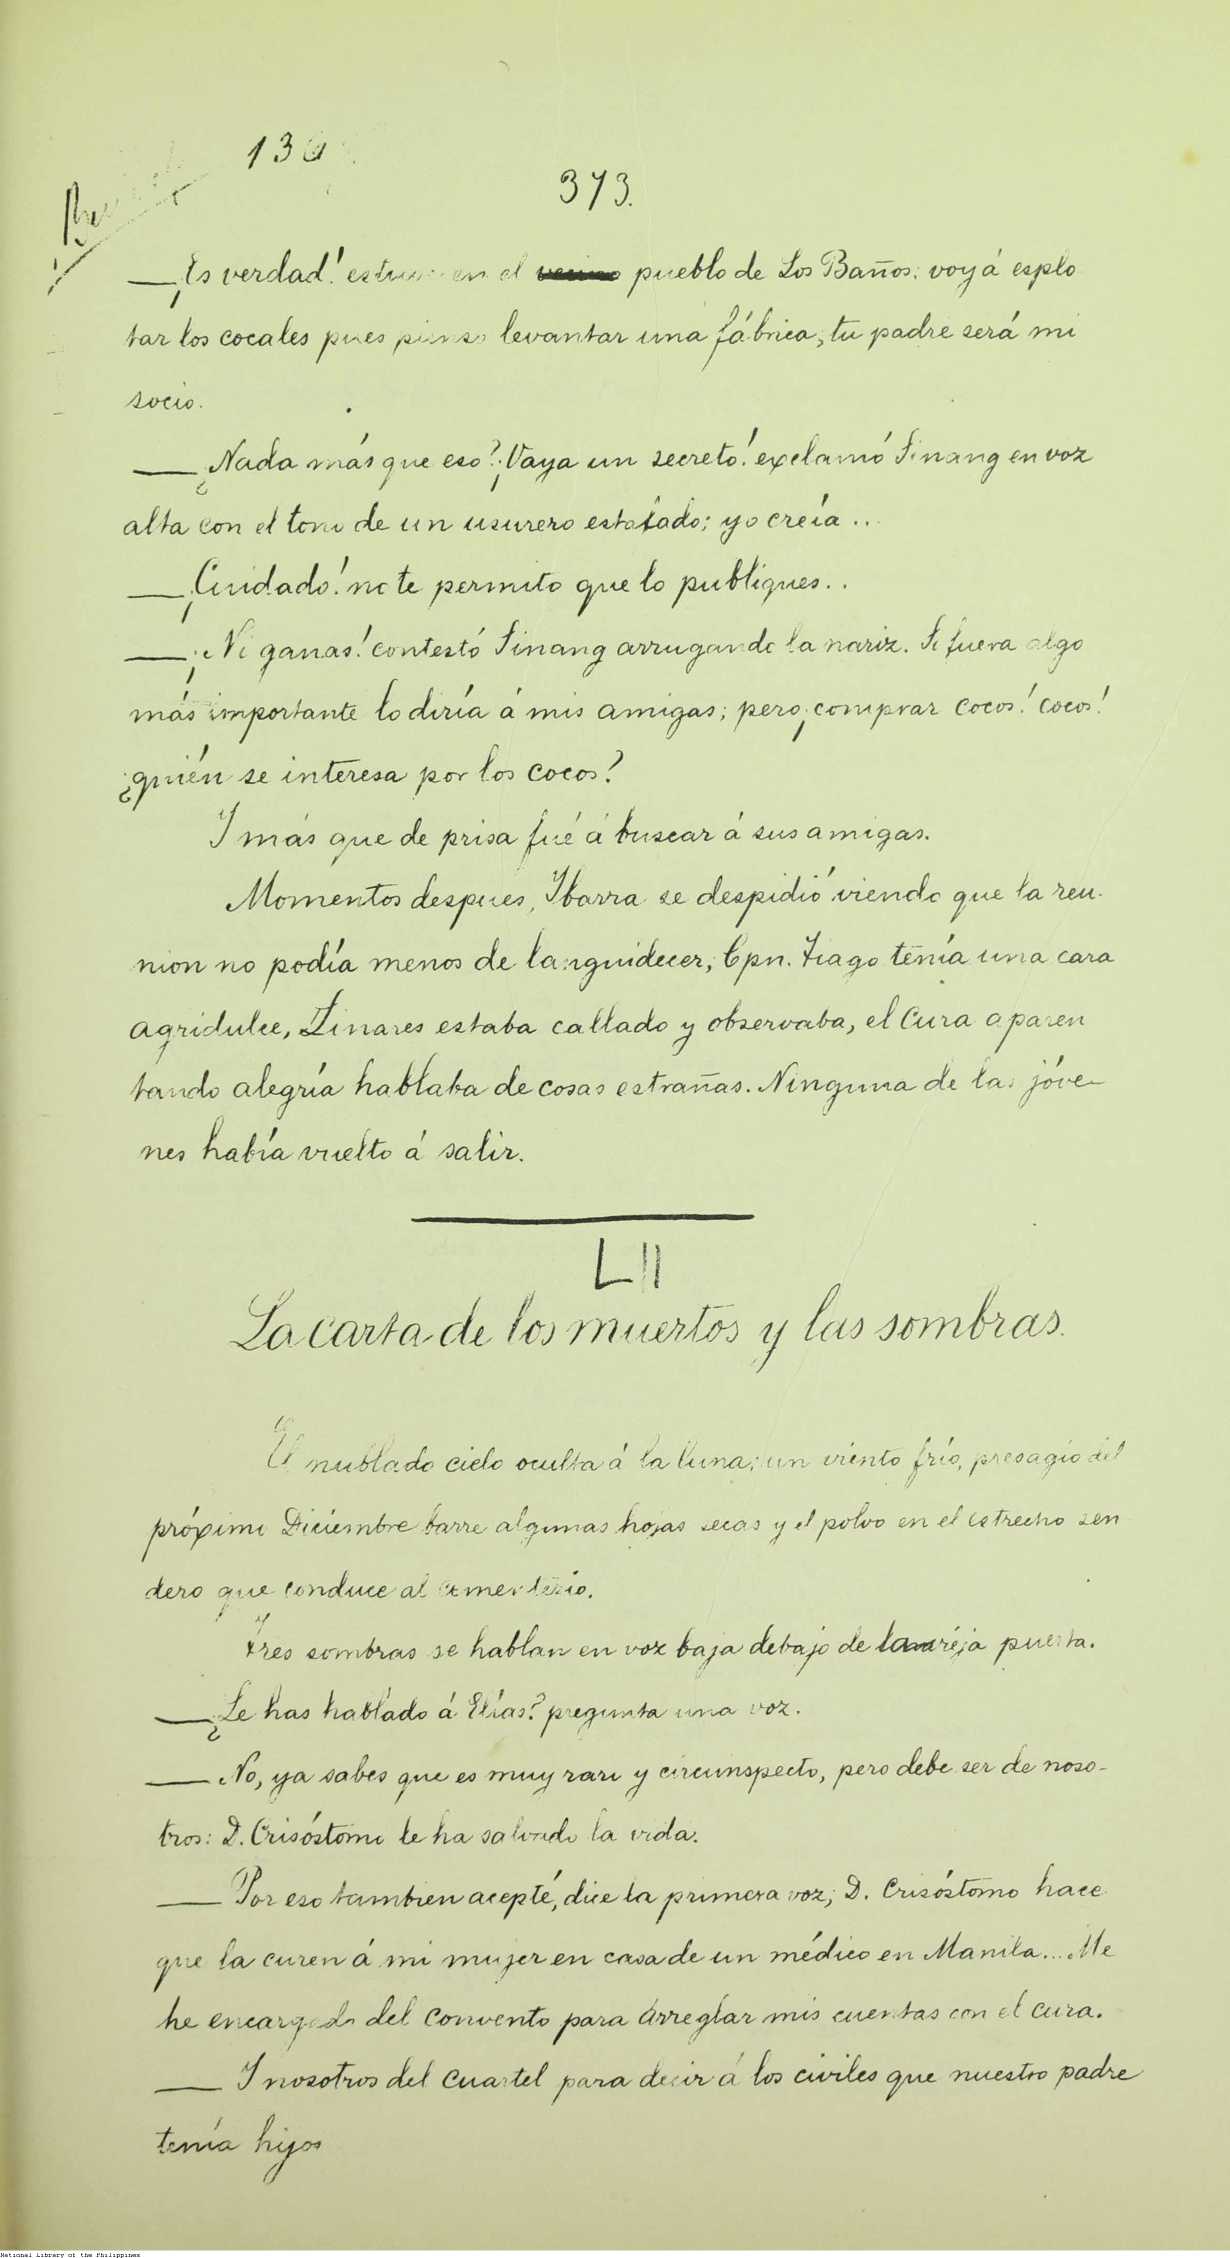 130
373.
— ¡Es verdad! estuve en el pueblo de Los Baños; voy á esplo
tar los cocales pues pienso levantar una fábrica; tu padre será mi
socio.
— ¿Nada más que eso? ¡Vaya un secreto! exclamó Sinang en voz
alta con el tono de un usurero estafado; yo creía...
— ¡Cuidado! no te permito que lo publiques..
— ¡Ni ganas! contestó Sinang arrugando la nariz. Si fuera algo
más importante lo diría á mis amigas; pero ¡comprar cocos! cocos!
¿quién se interesa por los cocos?
Y más que de prisa fué á buscar á sus amigas.
Momentos despues, Ibarra se despidió viendo que la reu-
nion no podía menos de languidecer; Cpn. Tiago tenía una cara
agridulce, Linares estaba callado y observaba, el Cura aparen
tando alegría hablaba de cosas estrañas. Ninguna de las jóve-
nes había vuelto á salir.
LII
La carta de los muertos y las sombras.
El nublado cielo oculta á la luna; un viento frío, presagio del
próximo Diciembre barre algunas hojas secas y el polvo en el estrecho sen
dero que conduce al cementerio.
Tres sombras se hablan en voz baja debajo de la puerta.
— ¿Le has hablado á Elías? pregunta una voz.
— No, ya sabes que es muy raro y circunspecto, pero debe ser de noso-
tros: D. Crisóstomo le ha salvado la vida.
— Por eso tambien acepté, dice la primera voz; D. Crisóstomo hace
que la curen á mi mujer en casa de un médico en Manila... Me
he encargado del convento para arreglar mis cuentas con el cura.
— Y nosotros del cuartel para decir á los civiles que nuestro padre
tenía hijos
National Library of the Philippines